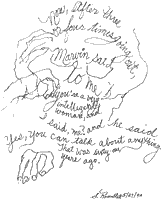 you, after three
or four times going out,
Marvin said
to me
you're a very
intelligent
woman, and
I said, me? and he said
Yes, you can talk about anything.
That was sixty one
years ago.